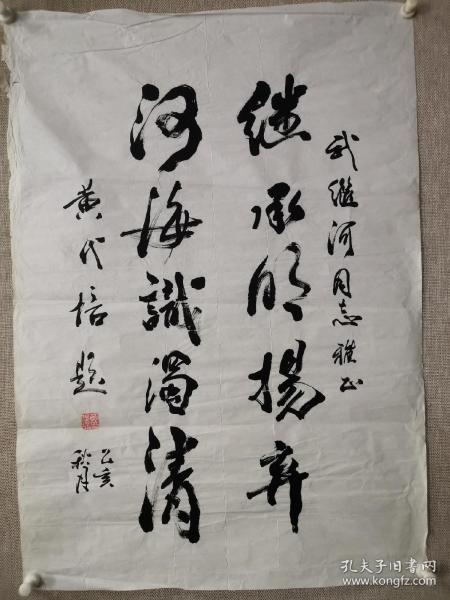 武继河同志雅正
继承明扬弃
河海識濁清
黄代培题
乙亥
秋月
孔夫子旧书网
www.kongfz.com